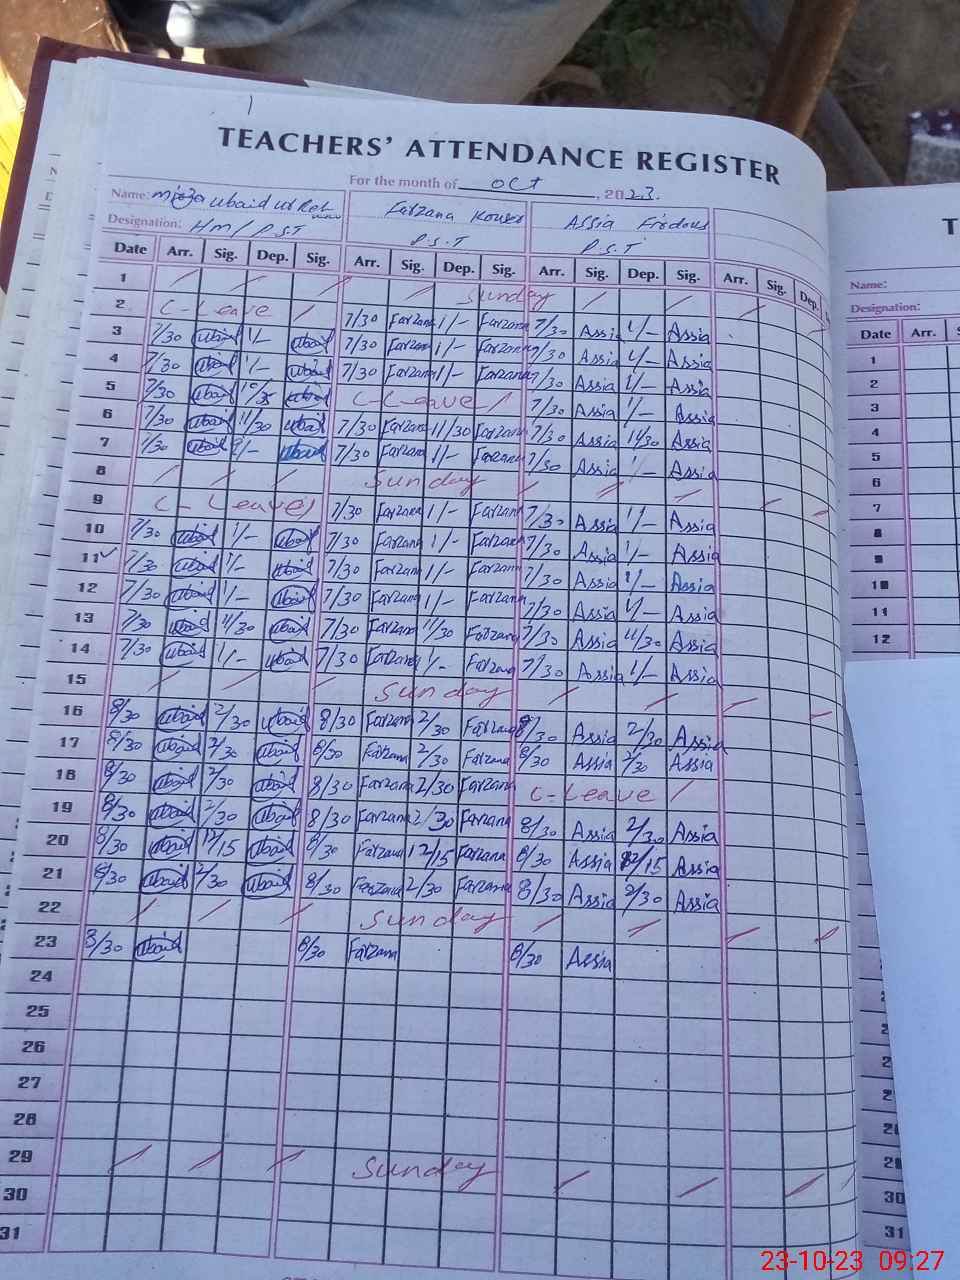 TEACHERS' ATTENDANCE REGISTER
For the month of Oct, 2023.
Name: Ubaid Ur Reh Farzana Kouser Assia Firdous
Designation: HM/P.S.T P.S.T P.S.T
Date Arr. Sig. Dep. Sig. Arr. Sig. Dep. Sig. Arr. Sig. Dep. Sig. Arr. Sig. Dep.
1 Sunday
2 C-Leave 7/30 Farzana 1/- Farzana 7/30 Assia 1/- Assia
3 7/30 Ubaid 1/- Ubaid 7/30 Farzana 1/- Farzana 7/30 Assia 1/- Assia
4 7/30 Ubaid 1/- Ubaid 7/30 Farzana 1/- Farzana 7/30 Assia 1/- Assia
5 7/30 Ubaid Ubaid C-Leave 7/30 Assia 1/- Assia
6 7/30 Ubaid 11/30 Ubaid 7/30 Farzana 11/30 Farzana 7/30 Assia 11/30 Assia
7 7/30 Ubaid 1/- Ubaid 7/30 Farzana 1/- Farzana 7/30 Assia Assia
8 Sunday
9 C-Leave 7/30 Farzana 1/- Farzana 7/30 Assia 1/- Assia
10 7/30 Ubaid 1/- Ubaid 7/30 Farzana 1/- Farzana 7/30 Assia 1/- Assia
11 7/30 Ubaid 1/- Ubaid 7/30 Farzana 1/- Farzana 7/30 Assia 1/- Assia
12 7/30 Ubaid 1/- Ubaid 7/30 Farzana 1/- Farzana 7/30 Assia 1/- Assia
13 7/30 Ubaid 11/30 Ubaid 7/30 Farzana 11/30 Farzana 7/30 Assia 11/30 Assia
14 7/30 Ubaid 1/- Ubaid 7/30 Farzana 1/- Farzana 7/30 Assia 1/- Assia
15 Sunday
16 8/30 Ubaid 2/30 Ubaid 8/30 Farzana 2/30 Farzana 8/30 Assia 2/30 Assia
17 8/30 Ubaid 2/30 Ubaid 8/30 Farzana 2/30 Farzana 8/30 Assia 2/30 Assia
18 8/30 Ubaid 2/30 Ubaid 8/30 Farzana 2/30 Farzana C-Leave
19 8/30 Ubaid 2/30 Ubaid 8/30 Farzana 2/30 Farzana 8/30 Assia 2/30 Assia
20 8/30 Ubaid 12/15 Ubaid 8/30 Farzana 12/15 Farzana 8/30 Assia 12/15 Assia
21 8/30 Ubaid 2/30 Ubaid 8/30 Farzana 2/30 Farzana 8/30 Assia 2/30 Assia
22 Sunday
23 8/30 Ubaid 8/30 Farzana 8/30 Assia
24
25
26
27
28
29 Sunday
30
31
T
Name:
Designation:
Date Arr. Sig.
1
2
3
4
5
6
7
8
9
10
11
12
30
31
23-10-23 09:27